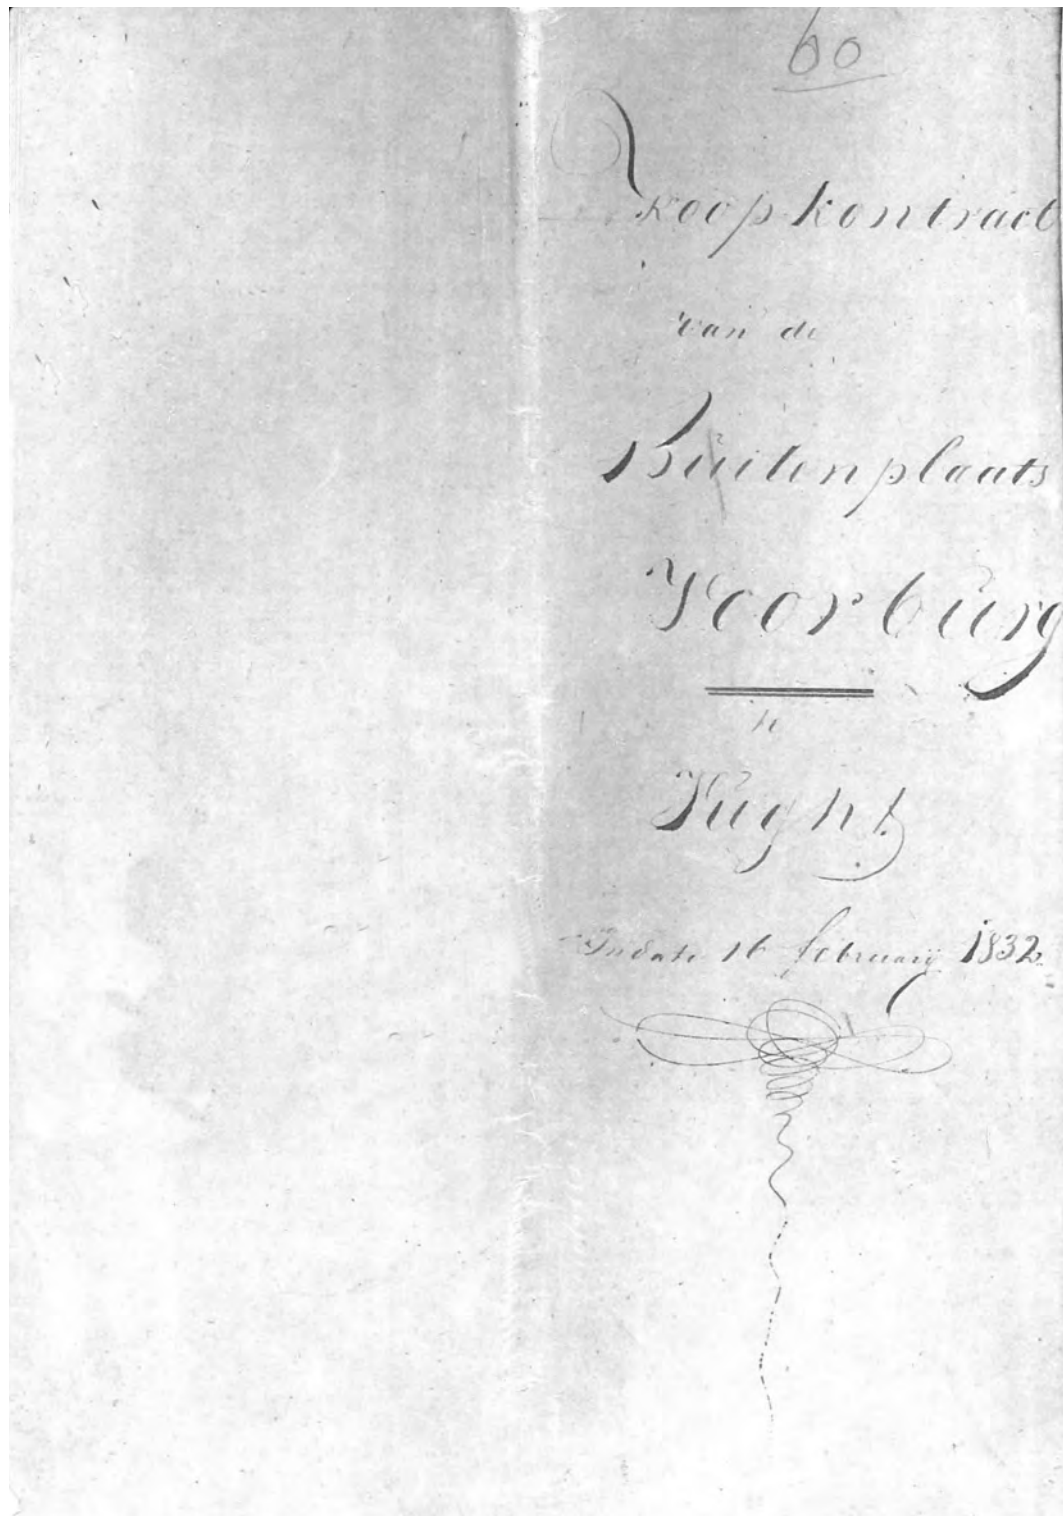 60
Koopkontract
van de
Buitenplaats
Voorburg
te
Vught
In dato 16 february 1832.